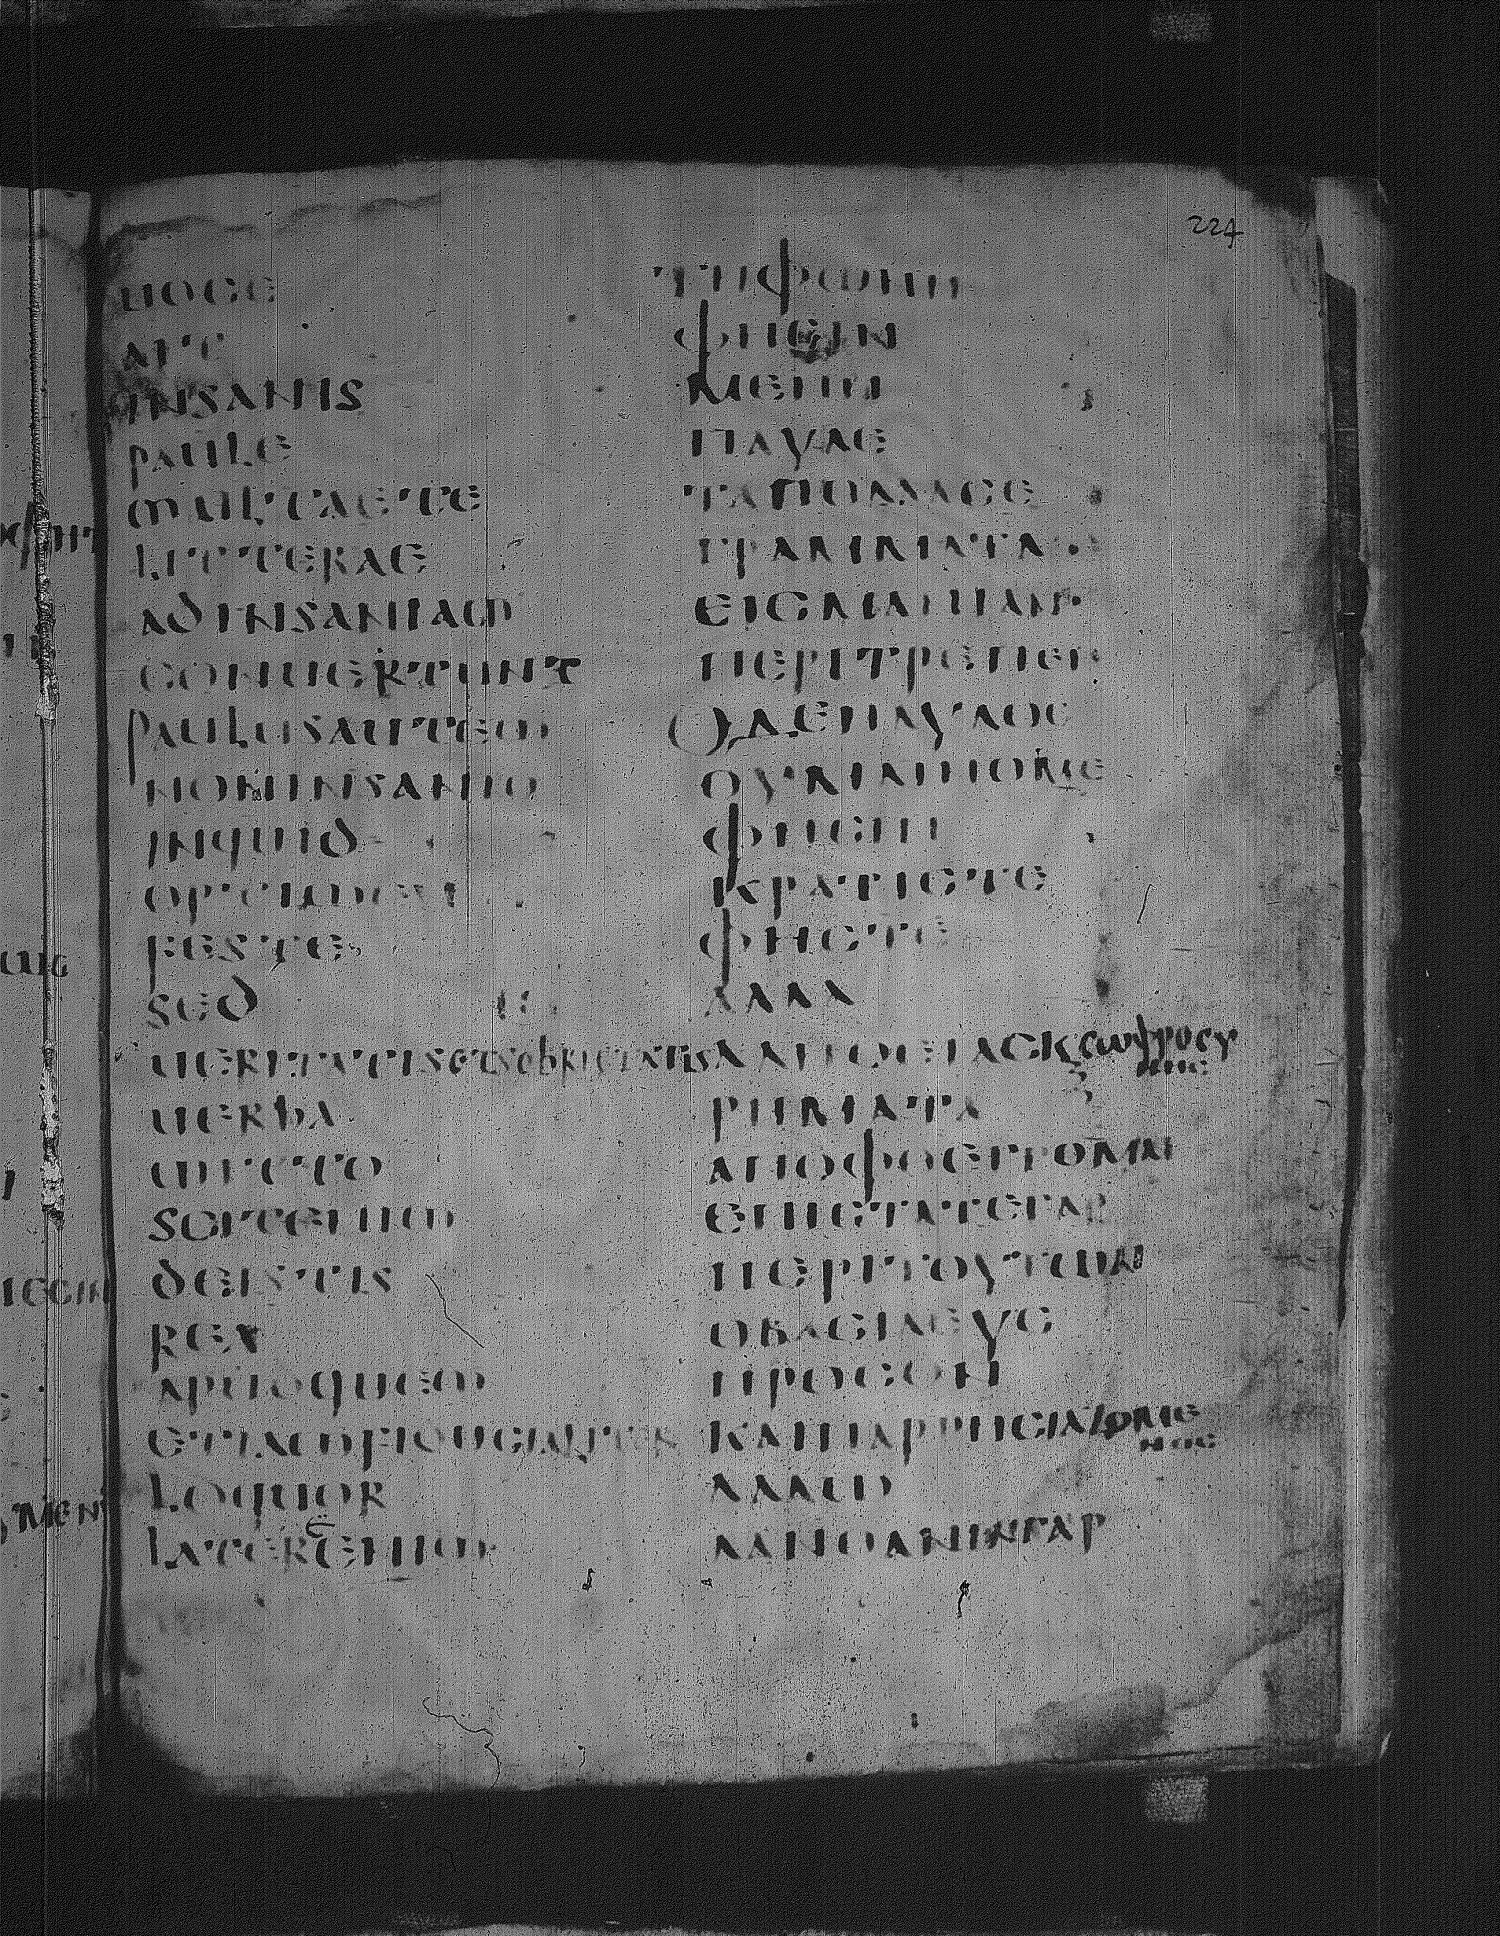 224
UOCE
AIT
INSANIS
PAULE
MULTAETE
LITTERAE
ADINSANIAM
CONUERTUNT
PAULUSAUTEM
NONINSANIO
INQUID
OPTIME
FESTE
SED
UERITATISETSOBRIETATIS
UERBA
MITTO
SCITENIM
DEISTIS
REX
APUDQUEM
ETIAMFIDUCIALITER
LOQUOR
LATEREENIM
ΤΗΦΩΝΗ
ΦΗCΙΝ
ΜΕΝΗ
ΠΑΥΛΕ
ΤΑΠΟΛΛΑCΕ
ΓΡΑΜΜΑΤΑ
ΕΙCΜΑΝΙΑΝ
ΠΕΡΙΤΡΕΠΕΙ
ΟΔΕΠΑΥΛΟC
ΟΥΜΑΙΝΟΜΕ
ΦΗCΙΝ
ΚΡΑΤΙCΤΕ
ΦΗCΤΕ
ΑΛΛΑ
ΑΛΗΘΕΙΑCΚCΩΦΡΟCΥ
ΝΗC
ΡΗΜΑΤΑ
ΑΠΟΦΘΕΓΓΟΜΑΙ
ΕΠΙCΤΑΤΕΓΑΡ
ΠΕΡΙΤΟΥΤΩΝ
ΟΒΑCΙΛΕΥC
ΠΡΟCΟΝ
ΚΑΙΠΑΡΡΗCΙΑΖΟΜΕ
ΝΟC
ΛΑΛΩ
ΛΑΝΘΑΝΙΝΓΑΡ